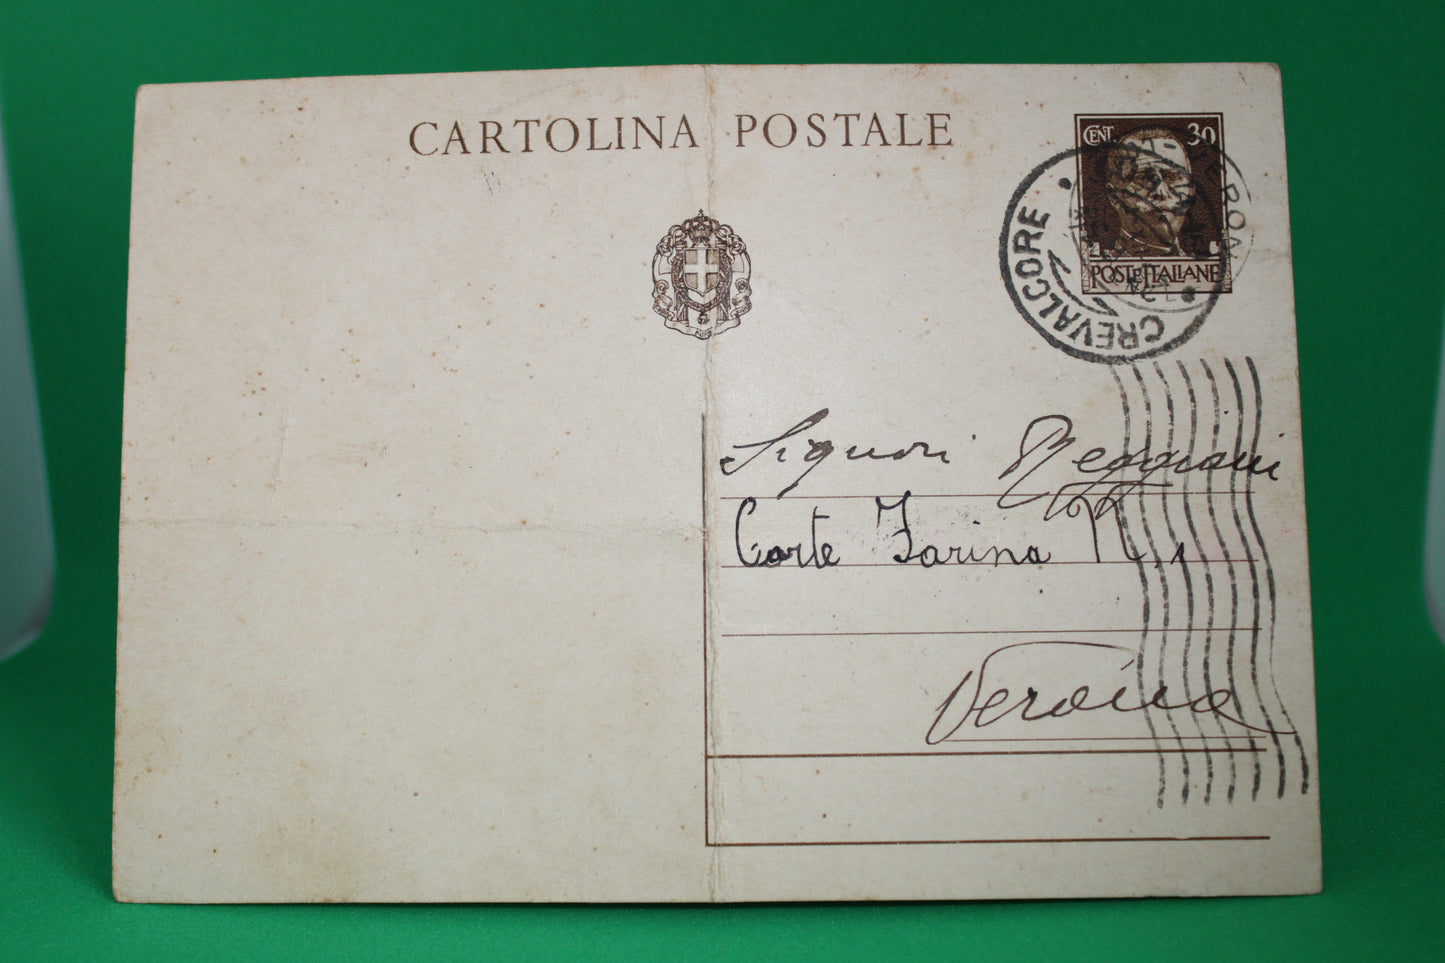 CARTOLINA POSTALE
CENT 30
POSTE ITALIANE
CREVALCORE
Signori Reggiani
Corte Farina N. 1
Verona